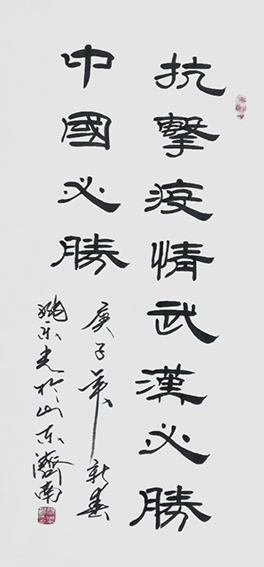 抗擊疫情武漢必勝
中國必勝
庚子年新春
姚光於山东濟南